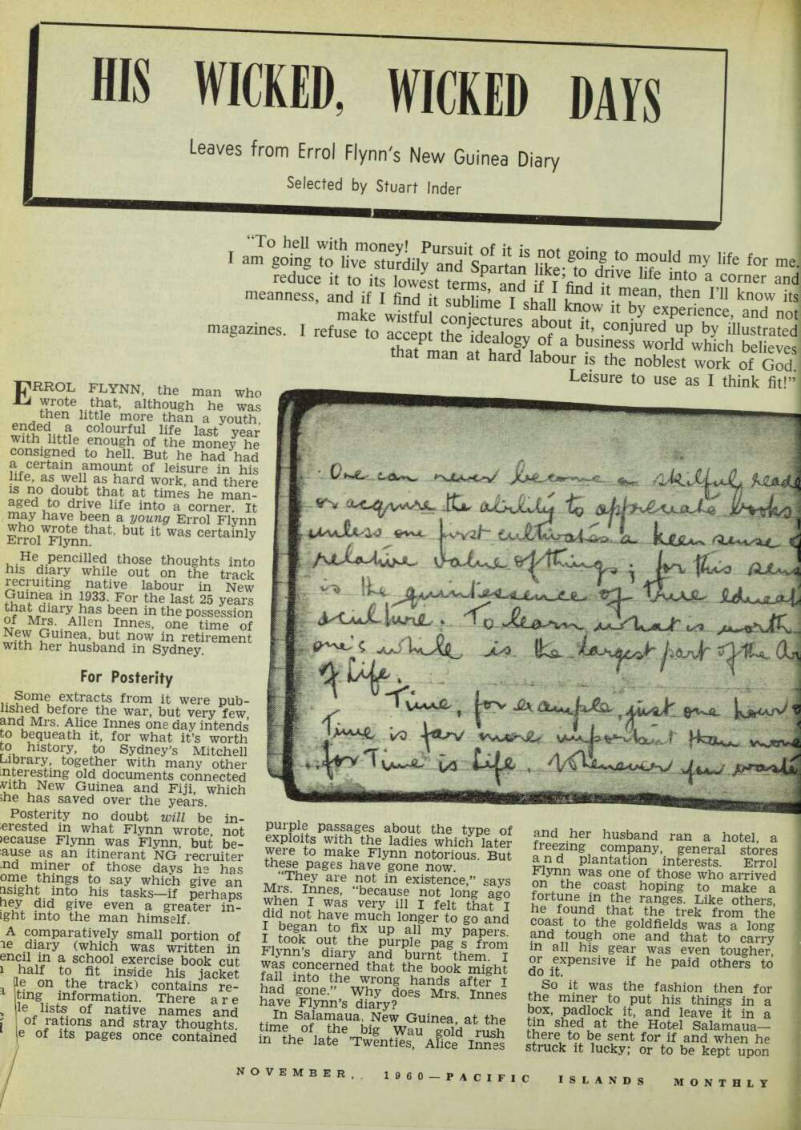 HIS WICKED, WICKED DAYS
Leaves from Errol Flynn's New Guinea Diary
Selected by Stuart Inder
"To hell with money! Pursuit of it is not going to mould my life for me.
I am going to live sturdily and Spartan like; to drive life into a corner and
reduce it to its lowest terms, and if I find it mean, then I'll know its
meanness, and if I find it sublime I shall know it by experience, and not
make wistful conjectures about it, conjured up by illustrated
magazines. I refuse to accept the idealogy of a business world which believes
that man at hard labour is the noblest work of God.
Leisure to use as I think fit!"
ERROL FLYNN, the man who
wrote that, although he was
then little more than a youth,
ended a colourful life last year
with little enough of the money he
consigned to hell. But he had had
a certain amount of leisure in his
life, as well as hard work, and there
is no doubt that at times he man-
aged to drive life into a corner. It
may have been a young Errol Flynn
who wrote that, but it was certainly
Errol Flynn.
He pencilled those thoughts into
his diary while out on the track
recruiting native labour in New
Guinea in 1933. For the last 25 years
that diary has been in the possession
of Mrs. Allen Innes, one time of
New Guinea, but now in retirement
with her husband in Sydney.
For Posterity
Some extracts from it were pub-
lished before the war, but very few,
and Mrs. Alice Innes one day intends
to bequeath it, for what it's worth
to history, to Sydney's Mitchell
Library, together with many other
interesting old documents connected
with New Guinea and Fiji, which
she has saved over the years.
Posterity no doubt will be in-
erested in what Flynn wrote, not
because Flynn was Flynn, but be-
ause as an itinerant NG recruiter
nd miner of those days he has
ome things to say which give an
nsight into his tasks—if perhaps
hey did give even a greater in-
ight into the man himself.
A comparatively small portion of
he diary (which was written in
encil in a school exercise book cut
half to fit inside his jacket
le on the track) contains re-
ting information. There are
le lists of native names and
of rations and stray thoughts.
e of its pages once contained
One can never become a skilful reade
or acquire the ability to appreciate books
unless one first cultivates a keen sense o
relative value of things; for this sens
is the quintessence of true educat
culture. To learn what is worth
one's while is the largest part of the Ar
of Life.
Time, for example, just one hour o
Time is far more important than mone
for Time is Life. Whenever you waste
purple passages about the type of
exploits with the ladies which later
were to make Flynn notorious. But
these pages have gone now.
"They are not in existence," says
Mrs. Innes, "because not long ago
when I was very ill I felt that I
did not have much longer to go and
I began to fix up all my papers.
I took out the purple pag s from
Flynn's diary and burnt them. I
was concerned that the book might
fall into the wrong hands after I
had gone." Why does Mrs. Innes
have Flynn's diary?
In Salamaua, New Guinea, at the
time of the big Wau gold rush
in the late 'Twenties, Alice Innes
and her husband ran a hotel, a
freezing company, general stores
and plantation interests. Errol
Flynn was one of those who arrived
on the coast hoping to make a
fortune in the ranges. Like others,
he found that the trek from the
coast to the goldfields was a long
and tough one and that to carry
in all his gear was even tougher,
or expensive if he paid others to
do it.
So it was the fashion then for
the miner to put his things in a
box, padlock it, and leave it in a
tin shed at the Hotel Salamaua—
there to be sent for if and when he
struck it lucky; or to be kept upon
NOVEMBER, 1960—PACIFIC ISLANDS MONTHLY